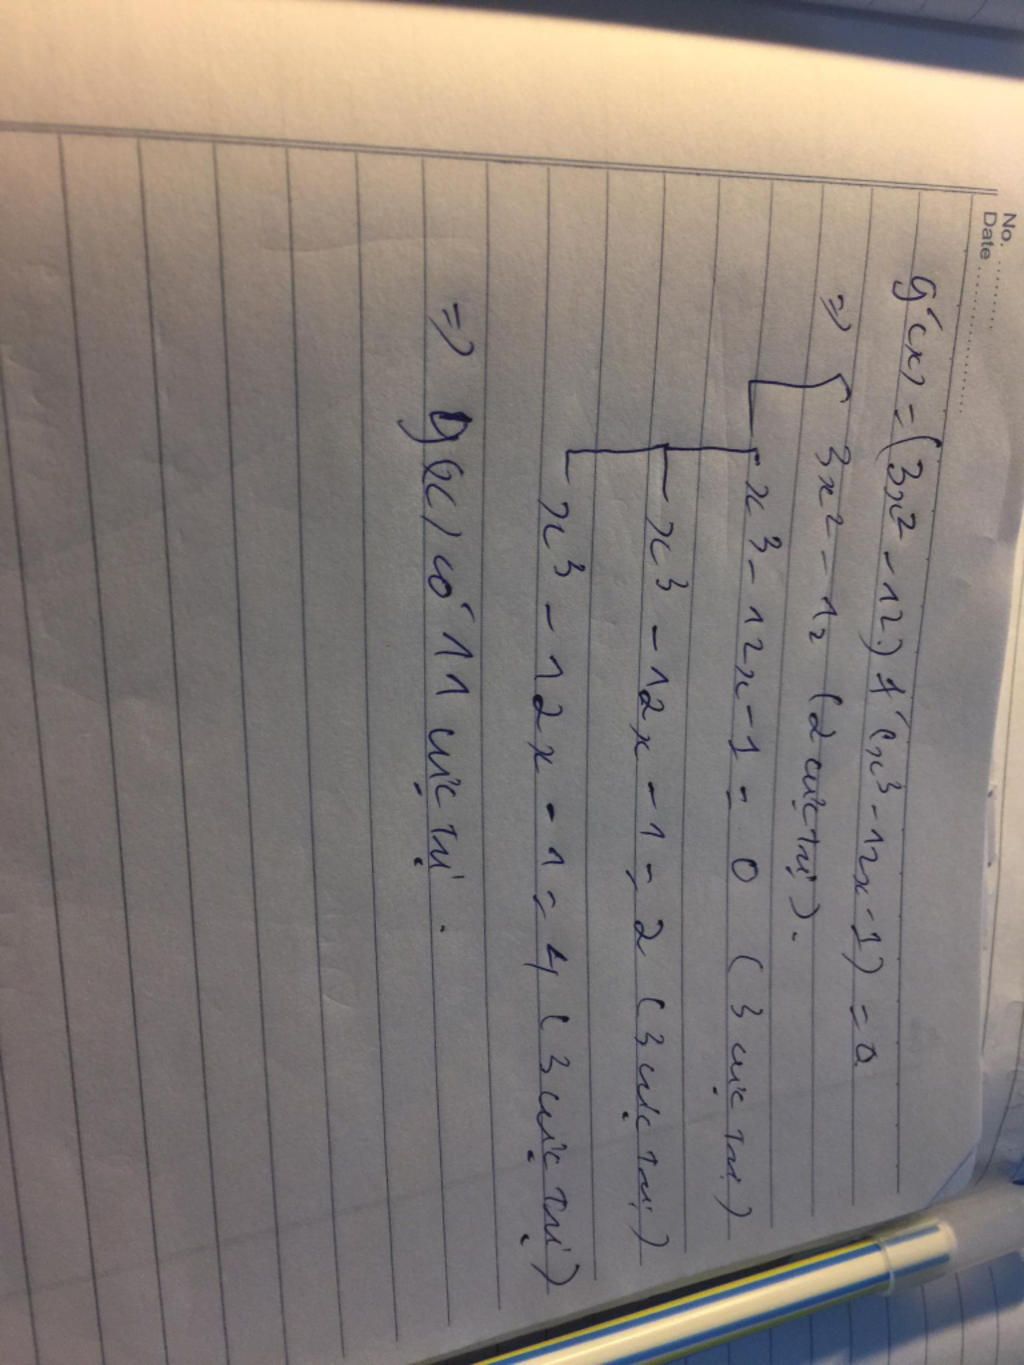 No. ............
Date ....................
g'(x) = (3x² - 12) f'(x³ - 12x - 1) = 0
=> 3x² - 12 (2 cực trị).
x³ - 12x - 1 = 0 (3 cực trị)
x³ - 12x - 1 = 2 (3 cực trị)
x³ - 12x - 1 = 4 (3 cực trị)
=> g(x) có 11 cực trị.